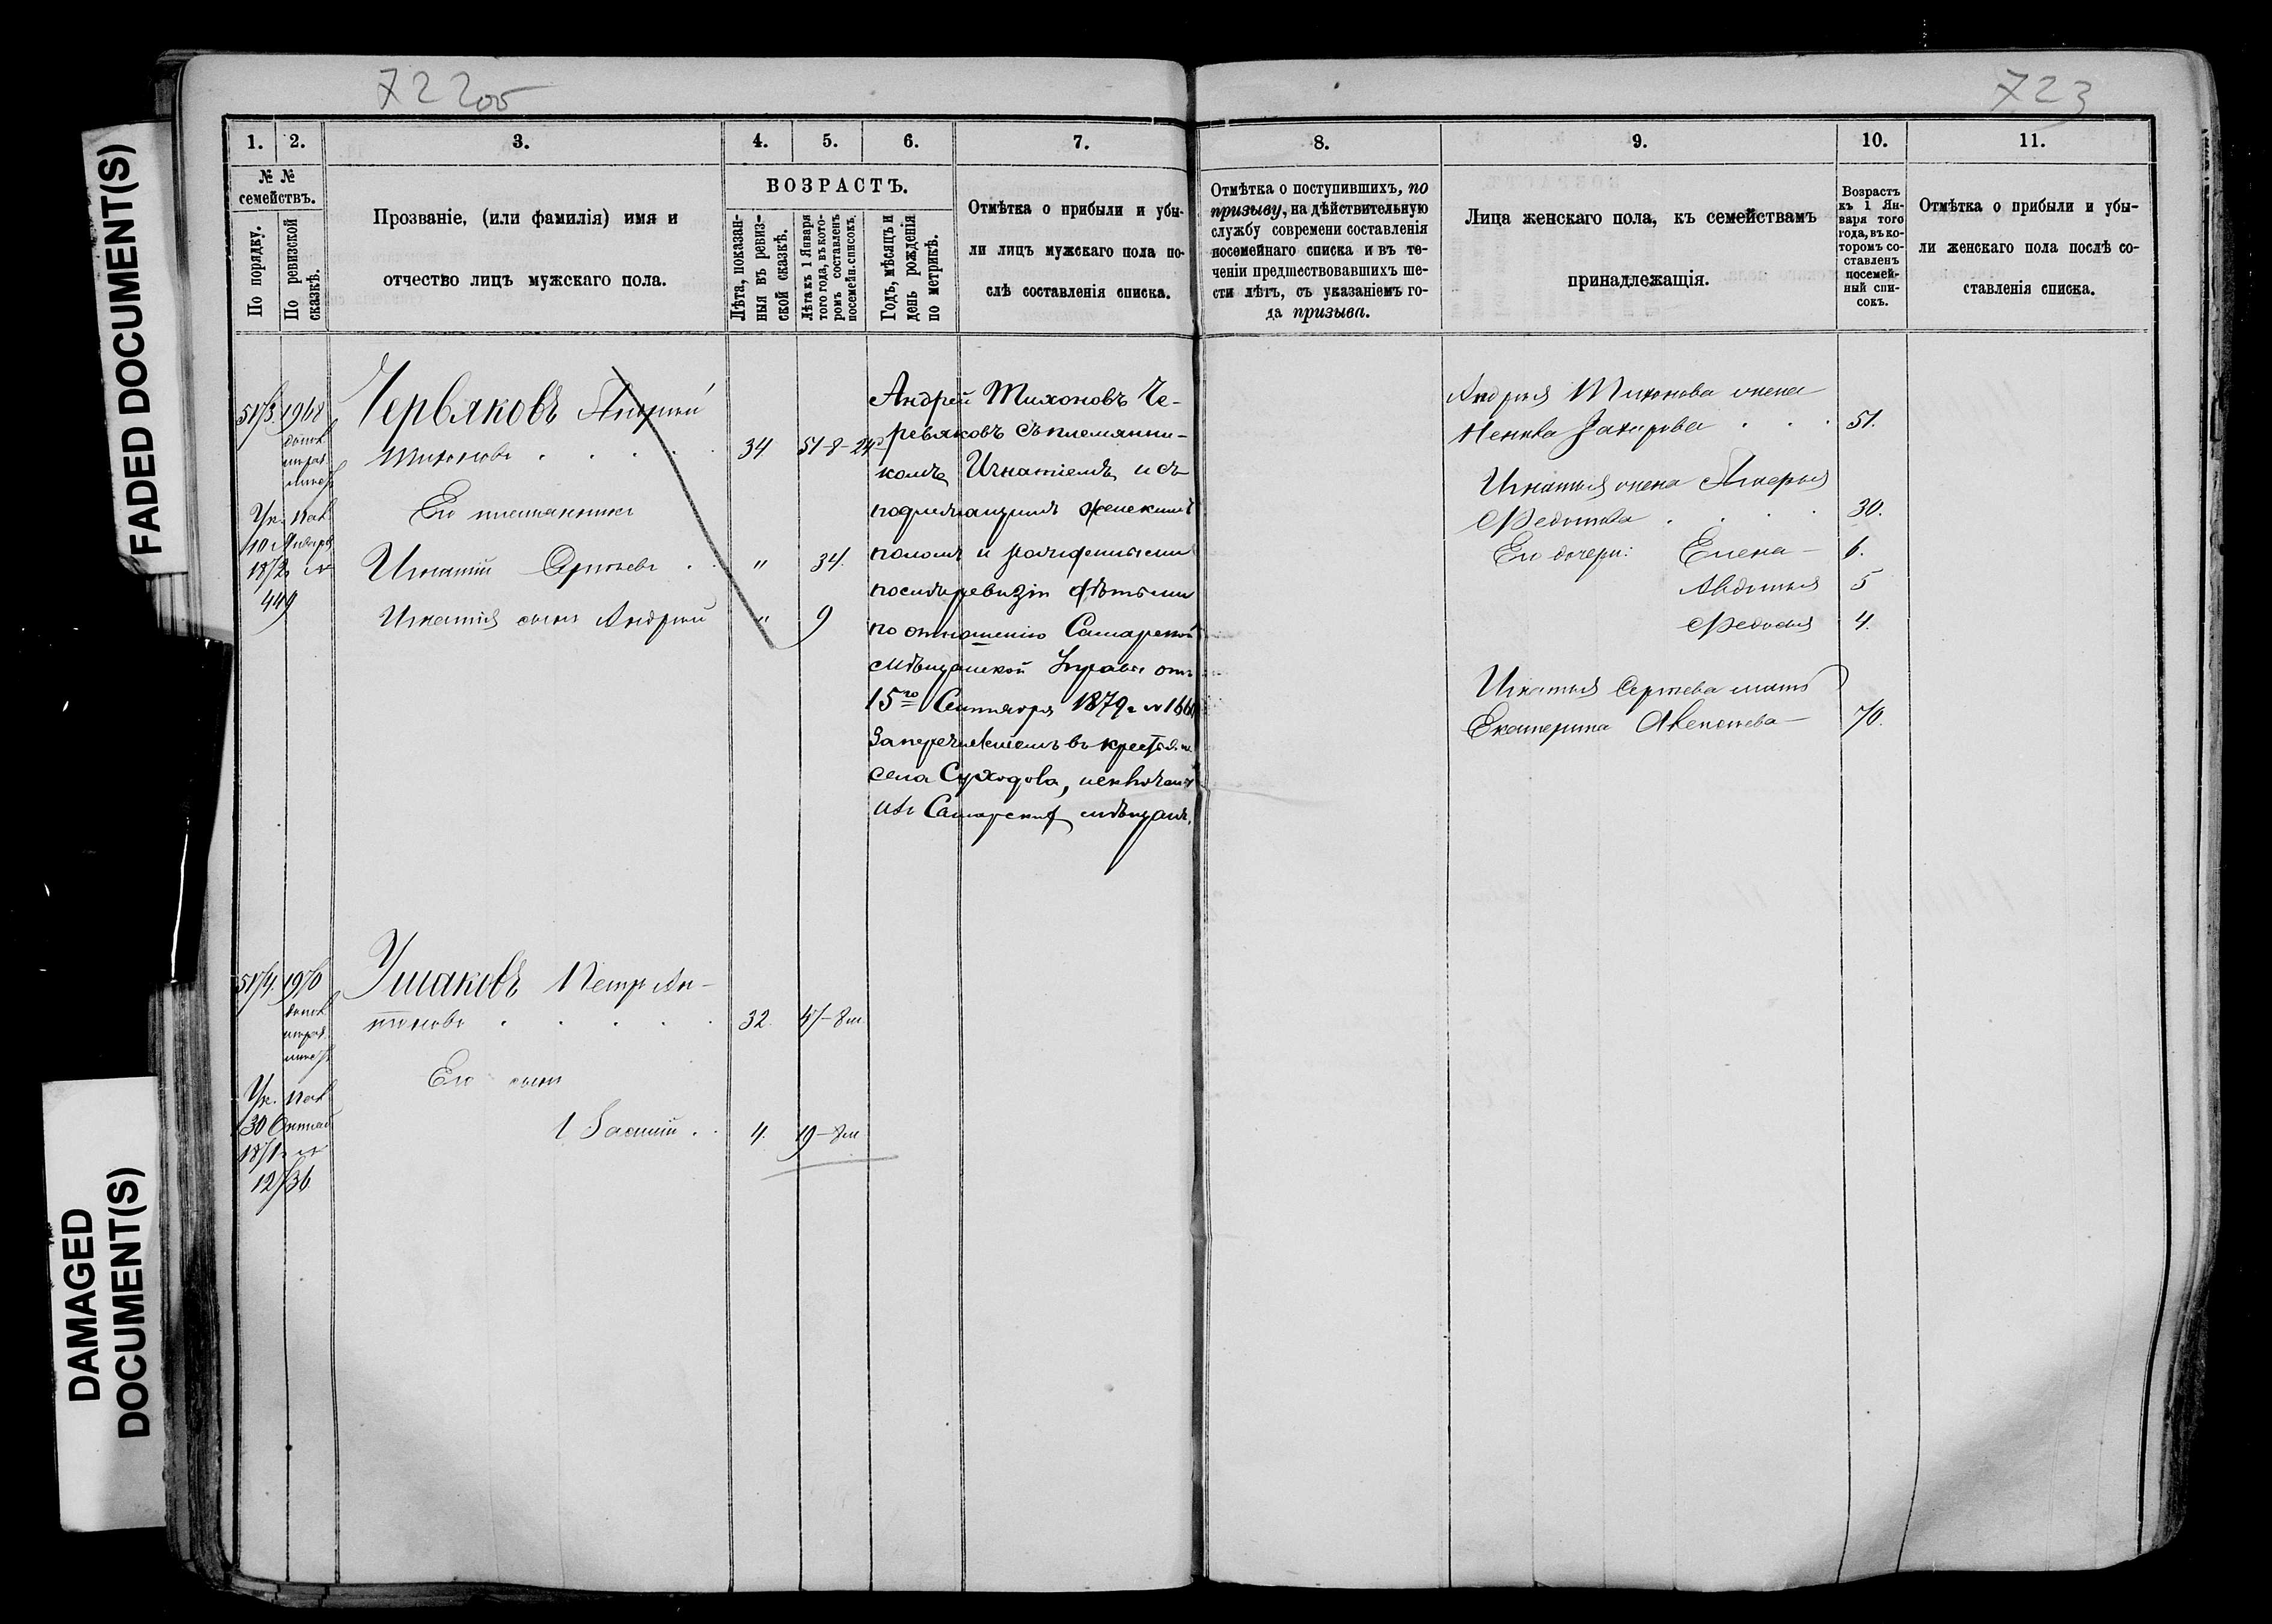 722 об
723
FADED DOCUMENT(S)
DAMAGED
DOCUMENT(S)
1.
2.
3.
4.
5.
6.
7.
№ №
семействъ.
По порядку.
По ревизской
сказкѣ.
Прозваніе, (или фамилія) имя и
отчество лицъ мужскаго пола.
ВОЗРАСТЪ.
Лѣта, показан-
ныя въ ревиз-
ской сказкѣ.
Лѣта къ 1 Января
того года, въ кото-
ромъ составленъ
посемейн. списокъ.
Годъ, мѣсяцъ и
день рожденія
по метрикѣ.
Отмѣтка о прибыли и убы-
ли лицъ мужскаго пола по-
слѣ составленія списка.
5173. 1968
Червяковъ Андрей
Тихоновъ . . . . 34 51-8-24
Его племянники
Ук. Пал.
10 Января
1872 №
449
Игнатій Сергѣевъ . . " 34.
Игнатія сынъ Андрей " 9
Андрей Тихоновъ Че-
ревяковъ съ племянни-
комъ Игнатіемъ и съ
женскимъ
поломъ и рожденными
послѣ ревизіи дѣтьми
по отношенію Самарской
мѣщанской Управы отъ
15го Сентября 1879 г №
села Суходола,
изъ Самарскихъ мѣщанъ.
5174. 1970
Ушаковъ Петръ Ан-
тоновъ . . . . . 32. 47-8 м
Ук. Пал.
30 Октяб
1871 г №
12736
Его сынъ
Василій . . 4. 19-8 м
8.
9.
10.
11.
Отмѣтка о поступившихъ, по
призыву, на дѣйствительную
службу современи составленія
посемейнаго списка и въ те-
ченіи предшествовавшихъ ше-
сти лѣтъ, съ указаніемъ го-
да призыва.
Лица женскаго пола, къ семействамъ
принадлежащія.
Возрастъ
къ 1 Ян-
варя того
года, въ ко-
торомъ со-
ставленъ
посемей-
ный спи-
сокъ.
Отмѣтка о прибыли и убы-
ли женскаго пола послѣ со-
ставленія списка.
Андрея Тихонова жена
Захарова . . . 51.
Игнатья жена
Федотова . . . . 30.
Его дочери: Елена - 6.
Авдотья 5
Федосья 4.
Игнатья Сергѣева мать
Екатерина 70.